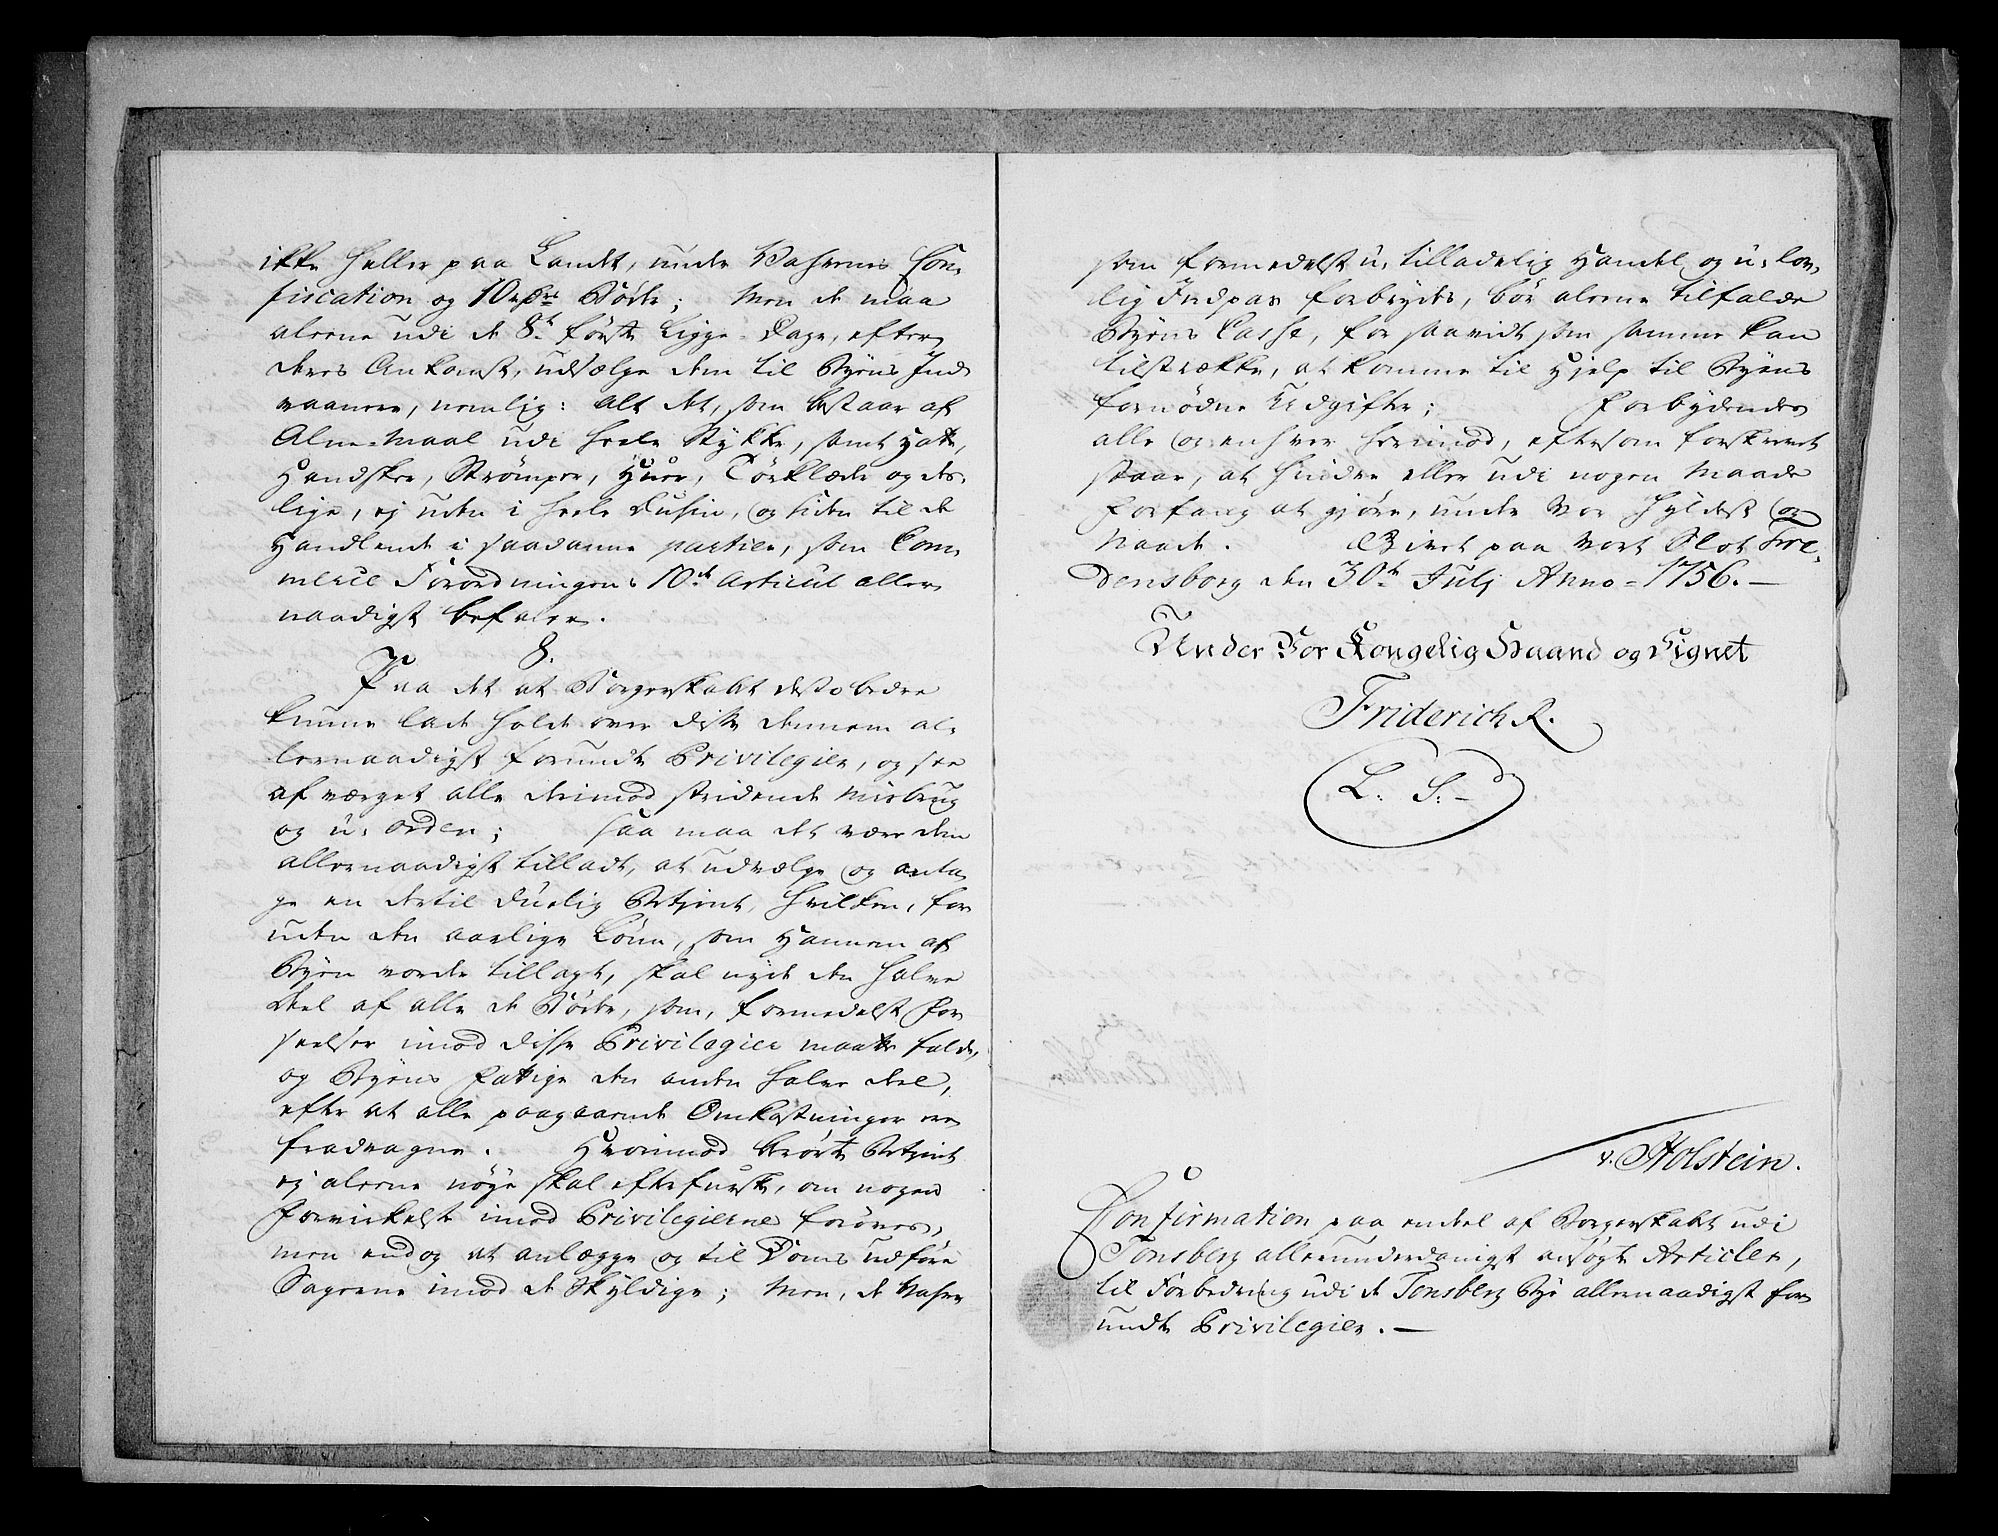 ikke heller paa Landet, under Vahrenes Con,
fiscation og 10 Rdrs Bøder; Men de maa
alleene udi de 8te første Ligge-Dage, efter
deres Ankomst, udsælge dem til Byens Ind
vaanere, nemlig: Alt det, som bestaar af
Alne-Maal udi heele Stykker, samt Hatte,
Handsker, Strømper, Huer, Tørklæder og des,
lige, ej uden i heele Dusin, og siden til de
Handlende i saadanne partier, som Com,
merce Forordningens 10de Articul aller
naadigst befaler.
8.
Paa det at Borgerskabet desto bedre
kunne lade holde over disse dennem al,
lernaadigst forundte Privilegier, og see
af værget alle derimod stridende Misbrug
og u, orden; Saa maa det være dem
allernaadigst tilladt, at udvælge og anta,
ge en dertil duelig Betjent, hvilken, for
uden den aarlige Lønn, som hannem af
Byen vorder tillagt, skal nyde den halve
Deel af alle de Bøder, som, formedelst For
seelser imod disse Privilegier maatte falde,
og Byens Fattige den anden halve Deel,
efter at alle paagaaende Omkostninger ere
fradragne. Hvorimod berørte Betjent
ej alleene nøye skal efterforske, om noged
Forvirkelse imod Privilegierne forøves,
men endog at anlægge og til Doms udføre
Sagerne imod de Skyldige; Men, de Vahre
som formedelst u, tilladelig Handel og u, lov,
lig Indpas forbrydes, bør alleene tilfalde
Byens Casse, for saavidt som samme kan
tilstrække, at komme til Hjelp til Byens
fornødne Udgifter; Forbydendes
alle og enhver herimod, eftersom forskrevet
staar, at hindre eller udi nogen Maade
Forfang at gjøre, under Vor Hyldest og
Naade. Givet paa Vort Slot Fre,
densborg den 30te Julj Anno-1756.-
Under Vor Kongelig Haand og Signet
Friderich R.
L: S:-
v. Holstein.
Confirmation paa endeel af Borgerskabet udi
Tonsberg allerunderdanigst ansøgte Articler,
til Forbedring udi de Tonsberg Bye allernaadigst for
undte Privilegier.-